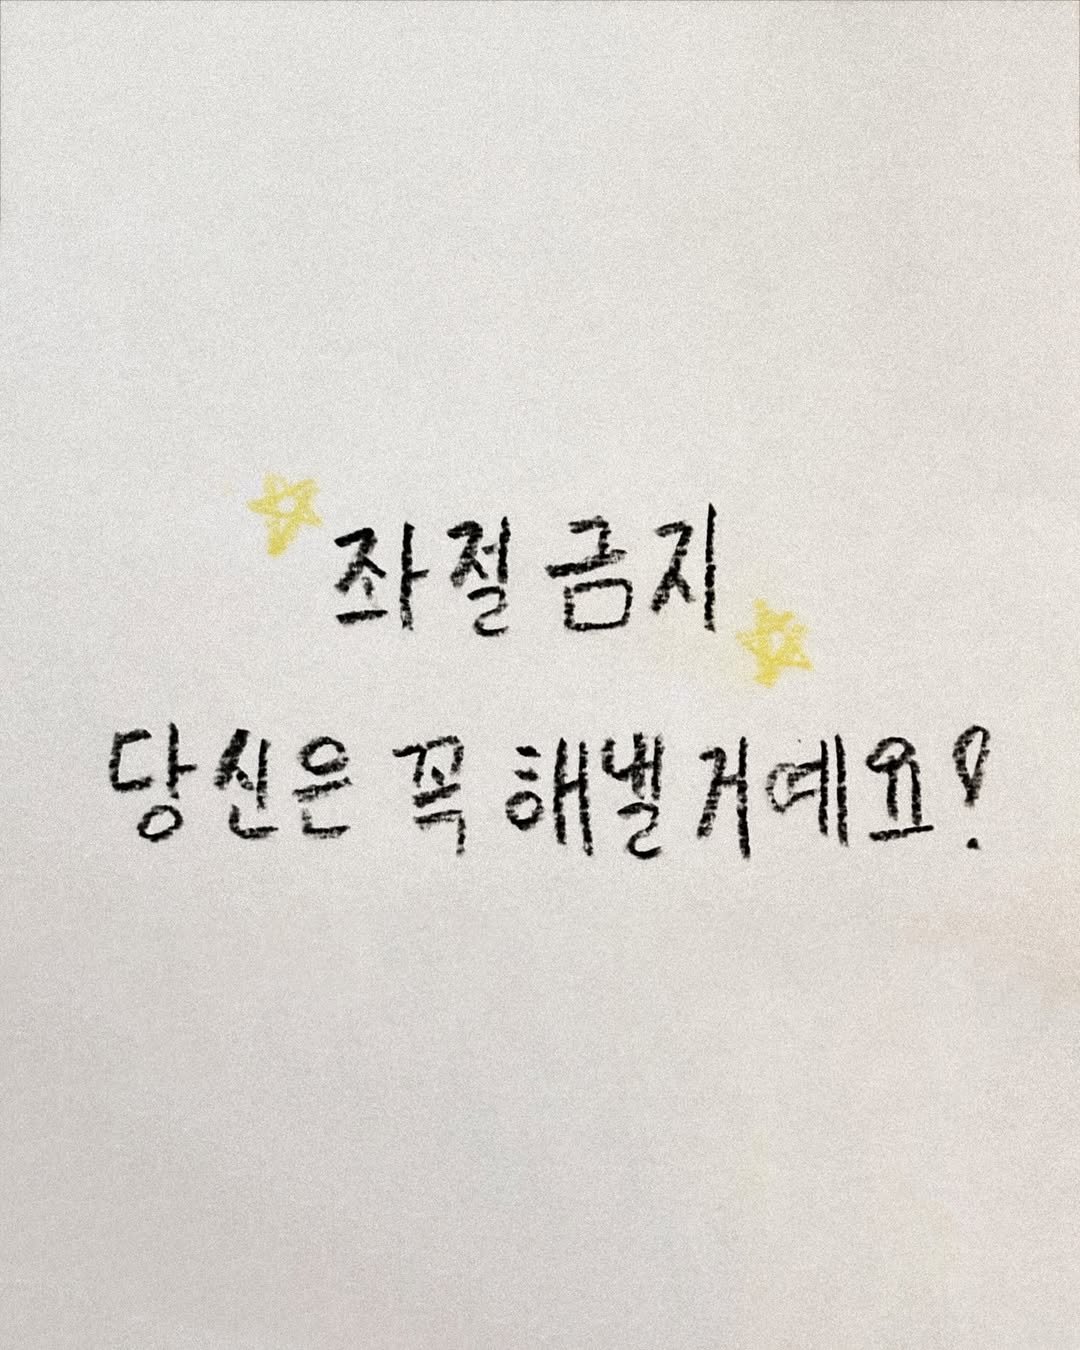 좌절 금지
당신은 꼭 해낼 거예요!